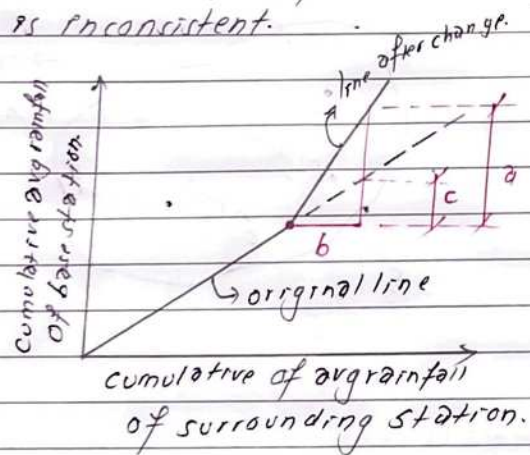 is inconsistent.
line after change.
cumulative avg rainfall
of base station
a
c
b
original line
cumulative of avg rainfall
of surrounding station.